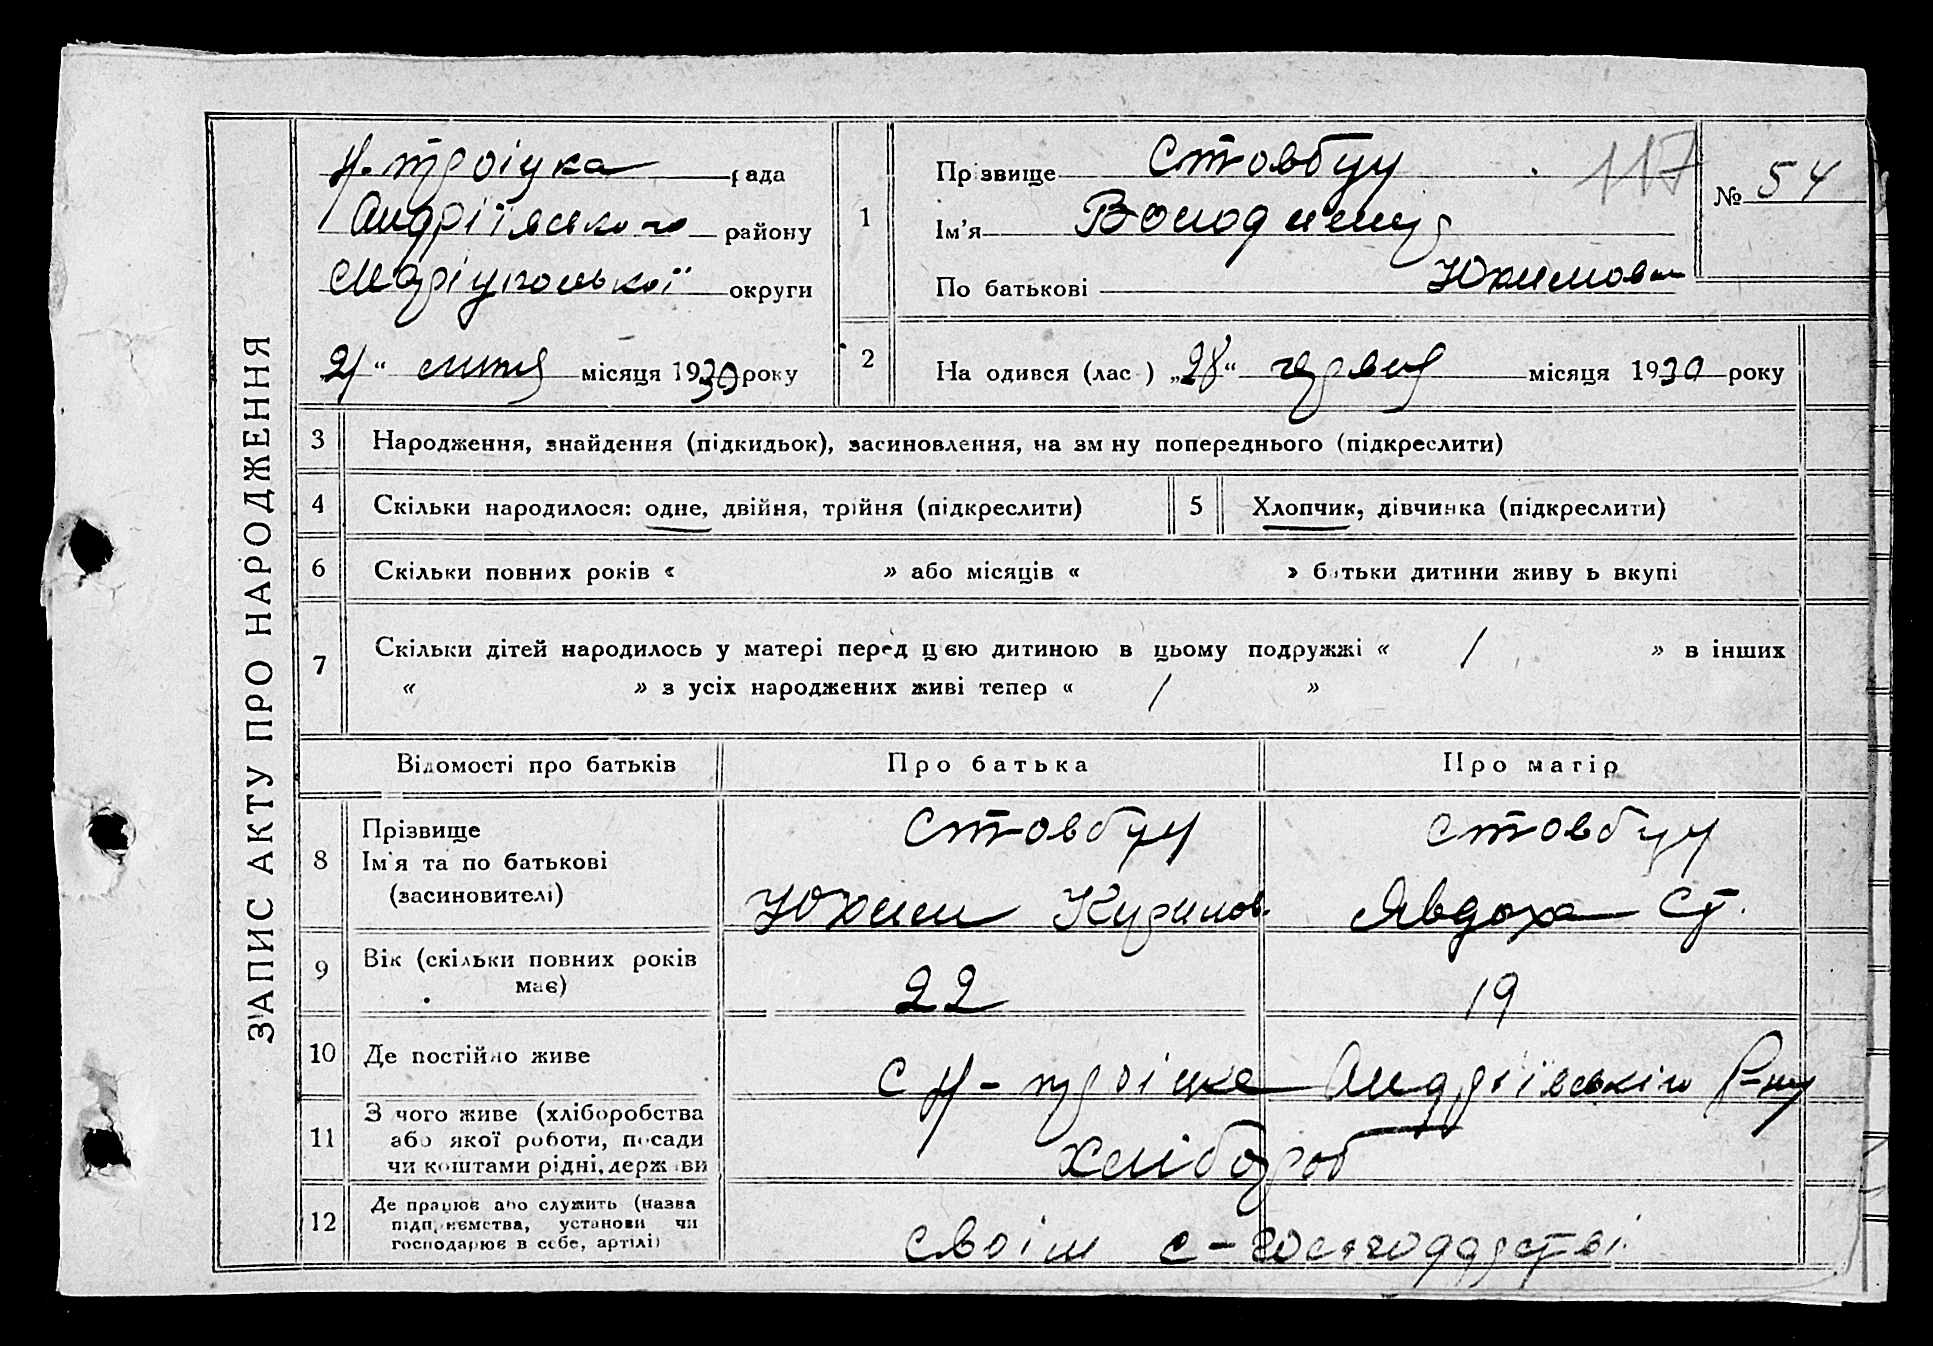 ЗАПИС АКТУ ПРО НАРОДЖЕННЯ
Н. Троіцка рада
Андріївського району
Маріупольської округи
21 " липня місяця 1930 року
1
Прізвище Стовбун
Ім'я Володимир
По батькові Юхимов
117
№ 54
2
На одився (лас ) „28“ червня місяця 1930 року
3 Народження, знайдення (підкидьок), засиновлення, на зм ну попереднього (підкреслити)
4 Скільки народилося: одне, двійня, трійня (підкреслити)
5 Хлопчик, дівчинка (підкреслити)
6 Скільки повних років « » або місяців « » батьки дитини живу ь вкупі
7 Скільки дітей народилось у матері перед цією дитиною в цьому подружжі « 1 » в інших
« » з усіх народжених живі тепер « 1 »
Відомості про батьків Про батька Про матір
8 Прізвище
Ім'я та по батькові
(засиновителі)
Стовбун
Юхим
Стовбун
Явдоха Ст.
9 Вік (скільки повних років
має)
22
19
10 Де постійно живе
с Н-Троіцке Андріївського р-ну
11 З чого живе (хліборобства
або якої роботи, посади
чи коштами рідні, держави
хлібороб
12 Де працює або служить (назва
підприємства, установи чи
господарює в себе, артілі)
своім с-господарстві